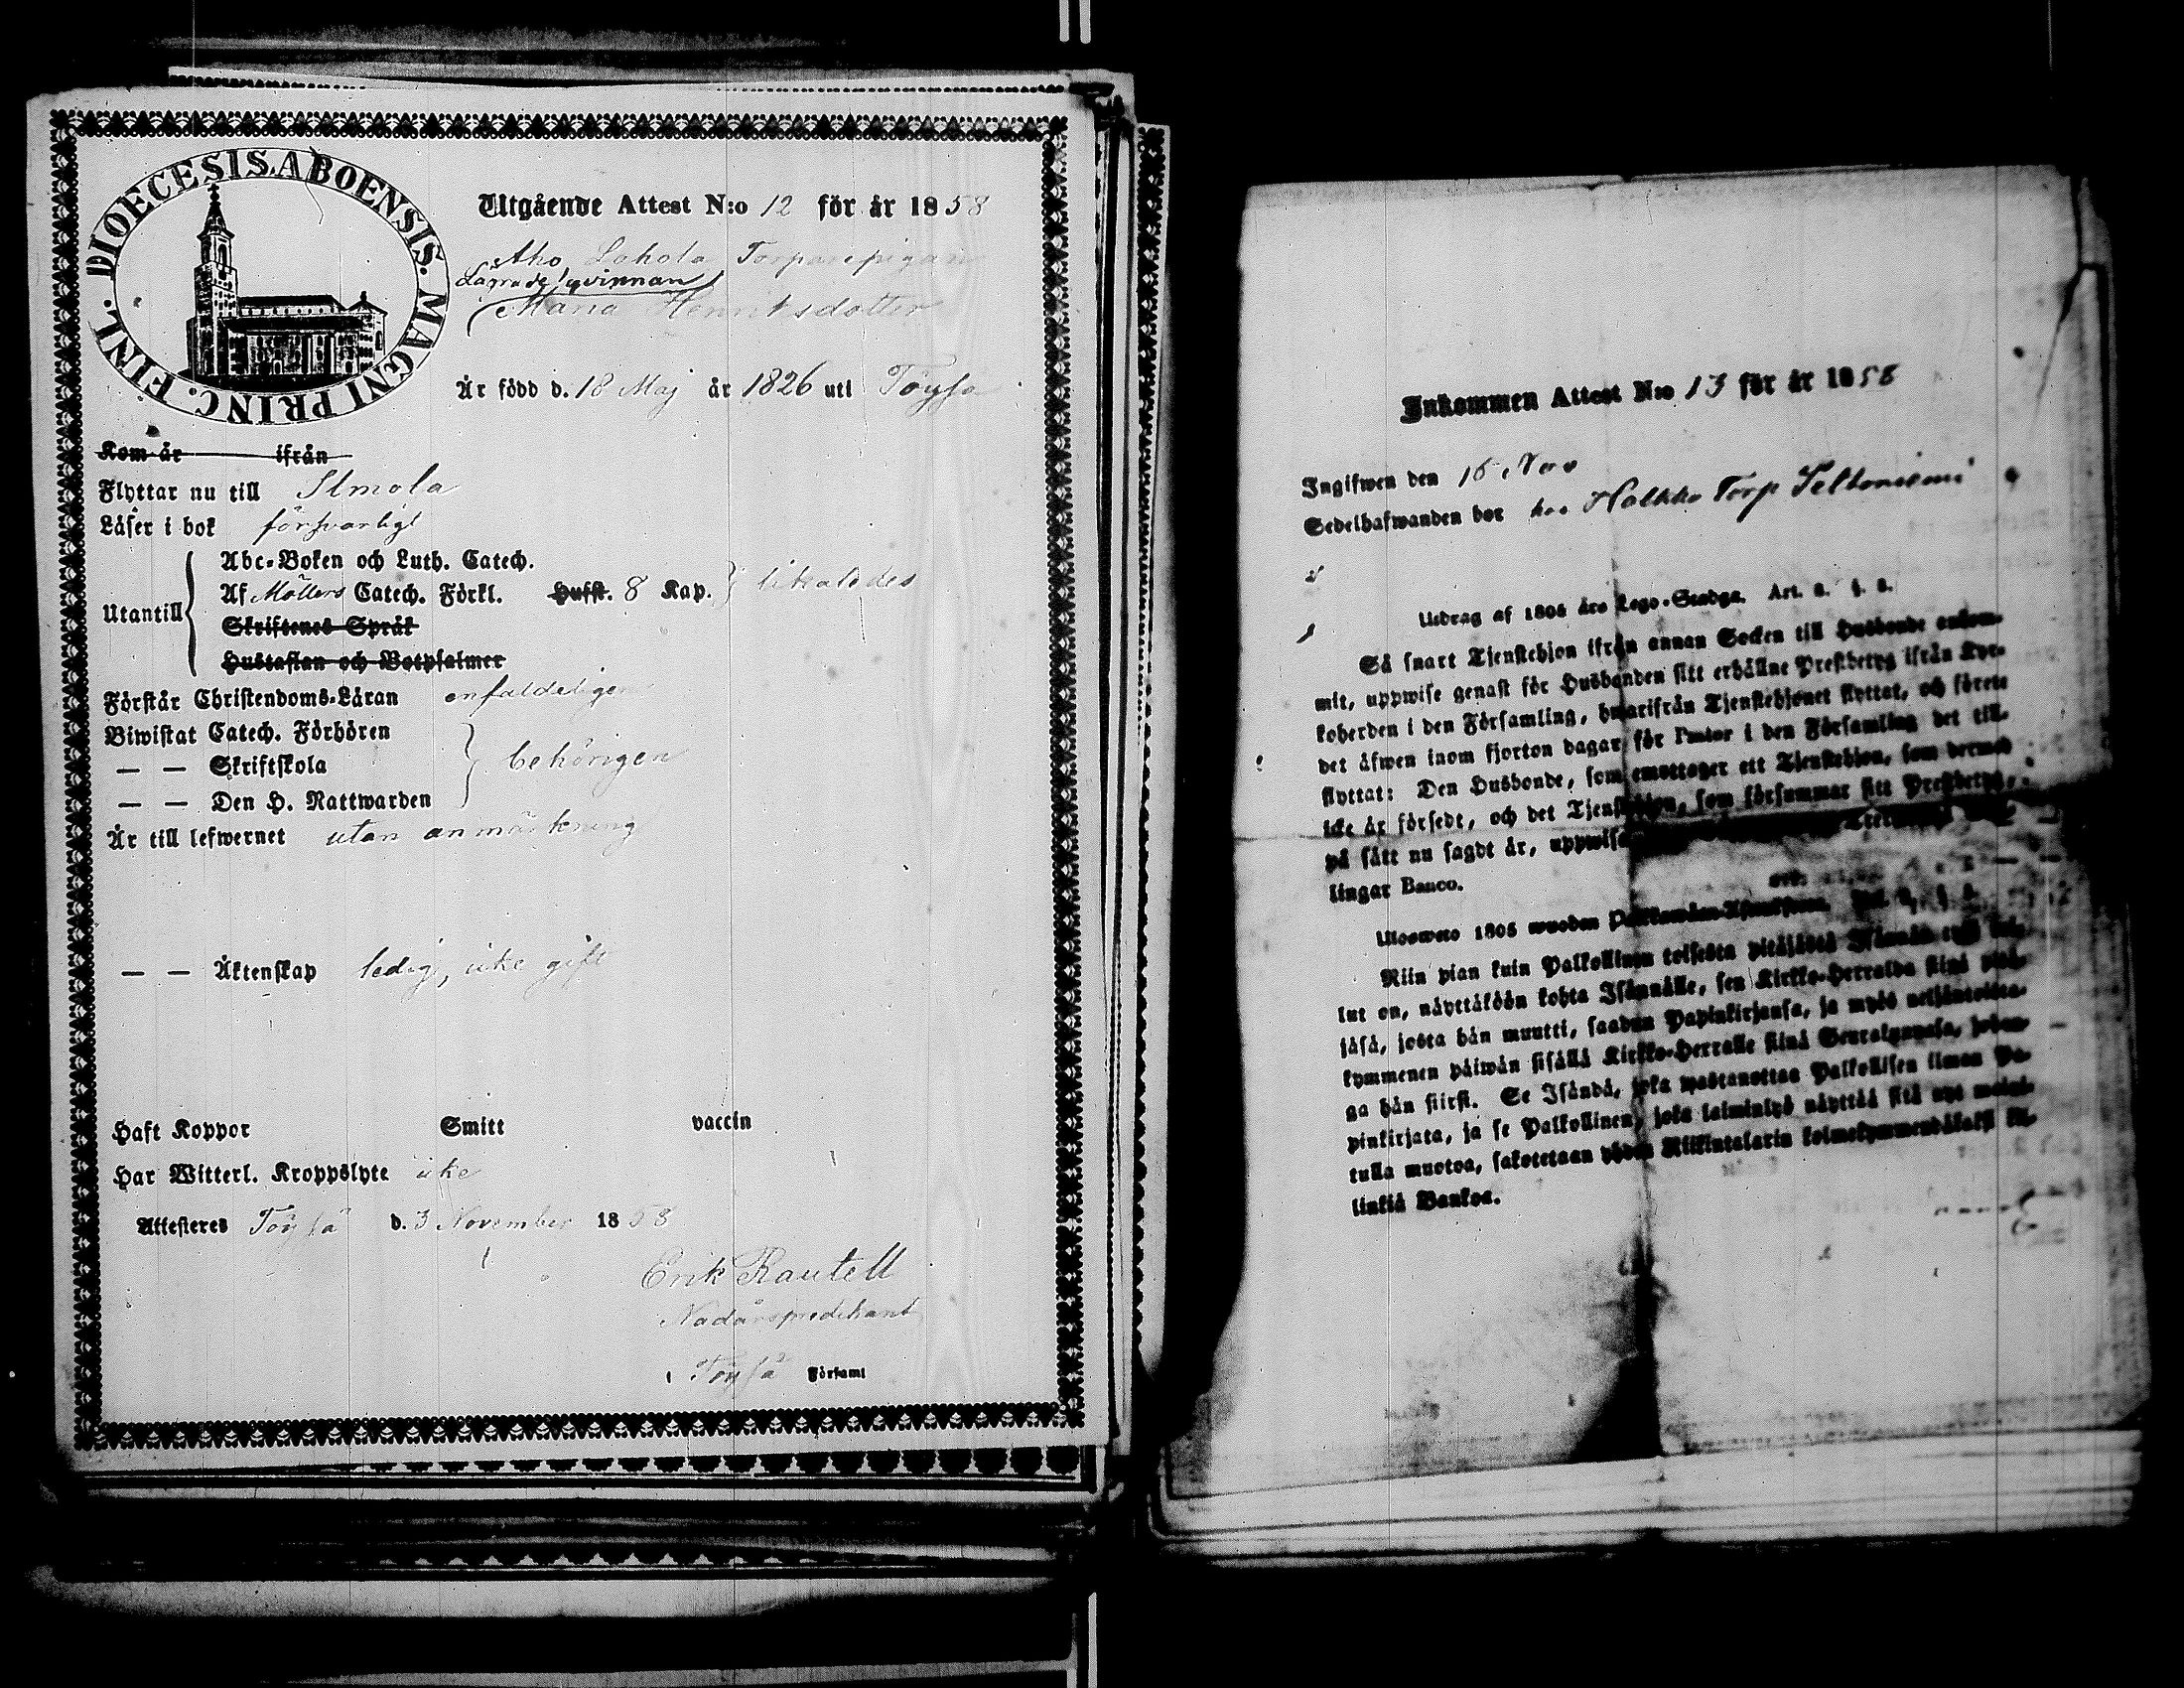 DIOECESIS. ABOENSIS. MAGNI PRINC. FINL.
Utgående Attest N:o 12 för år 1858
Aho Lahola Torparepigan
Lägrade qvinnan
Maria Henriksdotter
Är född d. 18 Maj år 1826 uti Töysä
Kom år ifrån
Flyttar nu till Ilmola
Läser i bok försvarligt
Utantill
Abc-Boken och Luth. Catech.
Af Möllers Catech. Förkl. Hufst. 8 Kap. likaledes
Skriftenes Språk
Hustaflan och Botpsalmer
Förstår Christendoms-Läran enfaldeligen
Biwistat Catech. Förhören
— — Skriftskola behörigen
— — Den H. Nattwarden
Är till lefwernet utan anmärkning
— — Äktenskap ledig, icke gift
Haft Koppor Smitt vaccin
Har Witterl. Kroppslyte icke
Attesteres Töysä d. 3 November 1858
Erik Rautell
Nådårspredikant
i Töysä Församl
Inkommen Attest N:o 13 för år 1858
Ingifwen den 16 Nov
Sedelhafwanden bor hos Holkko Torp
Utdrag af 1805 års Lego-Stadga. Art. 2. §. 2.
Så snart Tjenstehjon ifrån annan Socken till Husbonde ankom-
mit, uppwise genast för Husbonden sitt erhållne Prestbetyg ifrån Kyr-
koherden i den Församling, hwarifrån Tjenstehjonet flyttat, och förete
det äfwen inom fjorton dagar för Pastor i den Församling det till-
flyttat: Den Husbonde, som emottager ett Tjenstehjon, som dermed
icke är försedt, och det Tjenstehjon, som försummar sitt Prestbetyg,
på sätt nu sagdt är, uppwisa
lingar Banco.
Ulosweto 1805 wuoden
Niin pian kuin Palkollinen toisesta pitäjästä Isännän tygö tul-
lut on, näyttäköön kohta Isännälle, sen Kirkko-Herralda siinä pitä-
jäsä, josta hän muutti, saadun Papinkirjansa, ja myös neljäntoista-
kymmenen päiwän sisällä Kirkko-Herralle siinä Seurakunnasa, johon-
ga hän siirsi. Se Isändä, joka wastanottaa Palkollisen ilman Pa-
pinkirjata, ja se Palkollinen, joka laiminlyö näyttää sitä nyt maini-
tulla muotoa, sakotetaan yhden Riikintalarin kolmekymmendäkaksi sil-
linkiä Bankoa.